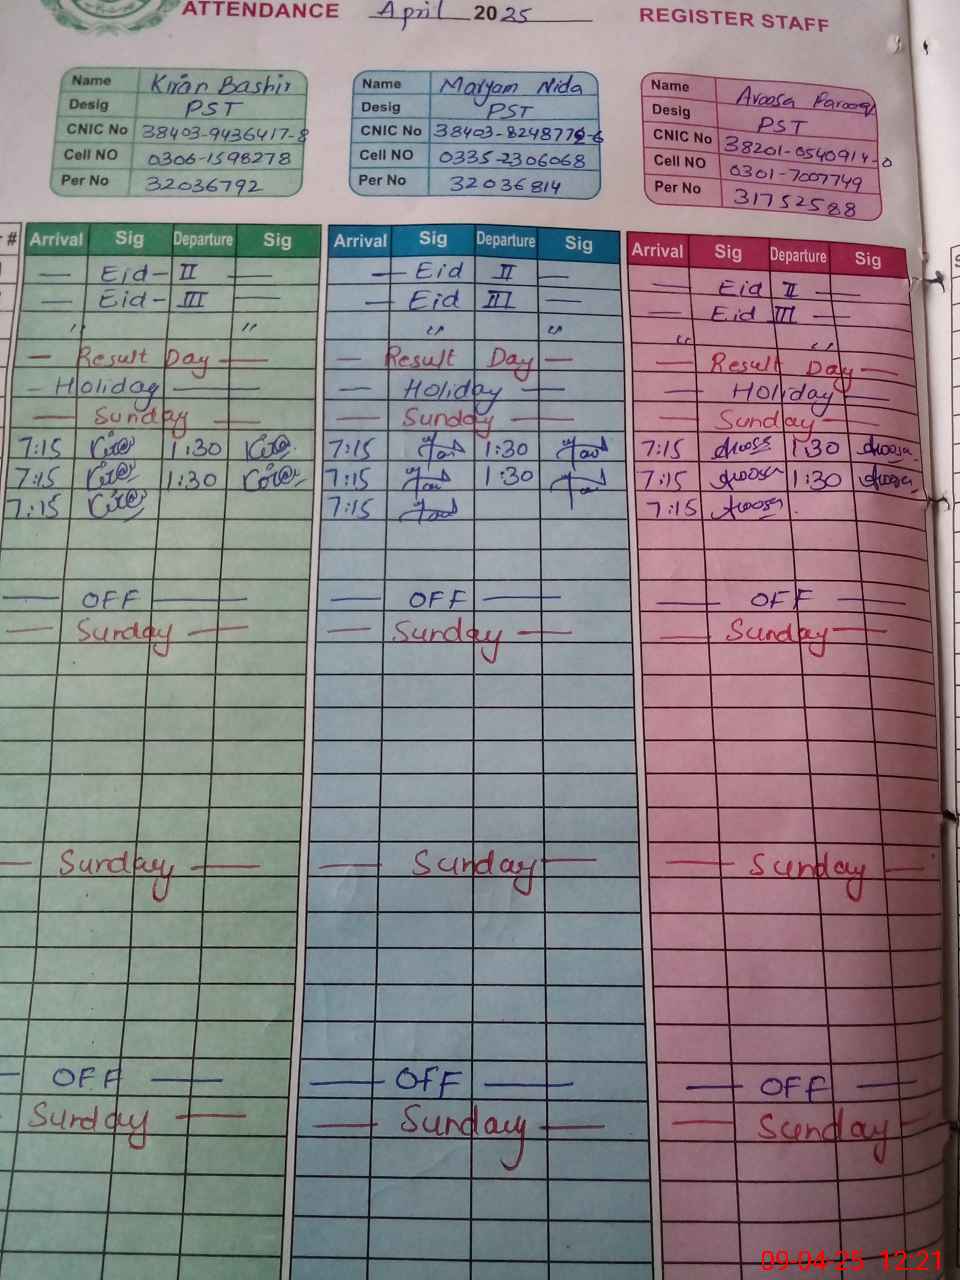 ATTENDANCE April 2025 REGISTER STAFF
Name Kiran Bashir
Desig PST
CNIC No 38403-9436417-8
Cell NO 0306-1598278
Per No 32036792
Name Maryam Nida
Desig PST
CNIC No 38403-8248779-6
Cell NO 0335-2306068
Per No 32036814
Name Aroosa Farooq
Desig PST
CNIC No 38201-0540914-0
Cell NO 0301-7007749
Per No 31752588
# Arrival Sig Departure Sig Arrival Sig Departure Sig Arrival Sig Departure Sig
— Eid-II — — Eid II — — Eid II —
— Eid-III — — Eid III — — Eid III —
" " " " " "
— Result Day — — Result Day — — Result Day —
— Holiday — — Holiday — — Holiday —
— Sunday — — Sunday — — Sunday —
7:15 1:30 7:15 1:30 7:15 Aroosa 1:30 Aroosa
7:15 1:30 7:15 1:30 7:15 Aroosa 1:30 Aroosa
7:15 7:15 7:15 Aroosa
— OFF — — OFF — — OFF —
— Sunday — — Sunday — — Sunday —
— Sunday — — Sunday — — Sunday —
— OFF — — OFF — — OFF —
Sunday — — Sunday — — Sunday —
09-04-25 12:21